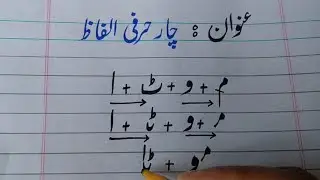 عنوان : چار حرفی الفاظ
م + و + ٹ + ا
مـ + و + ٹا + ا
مو + ٹا